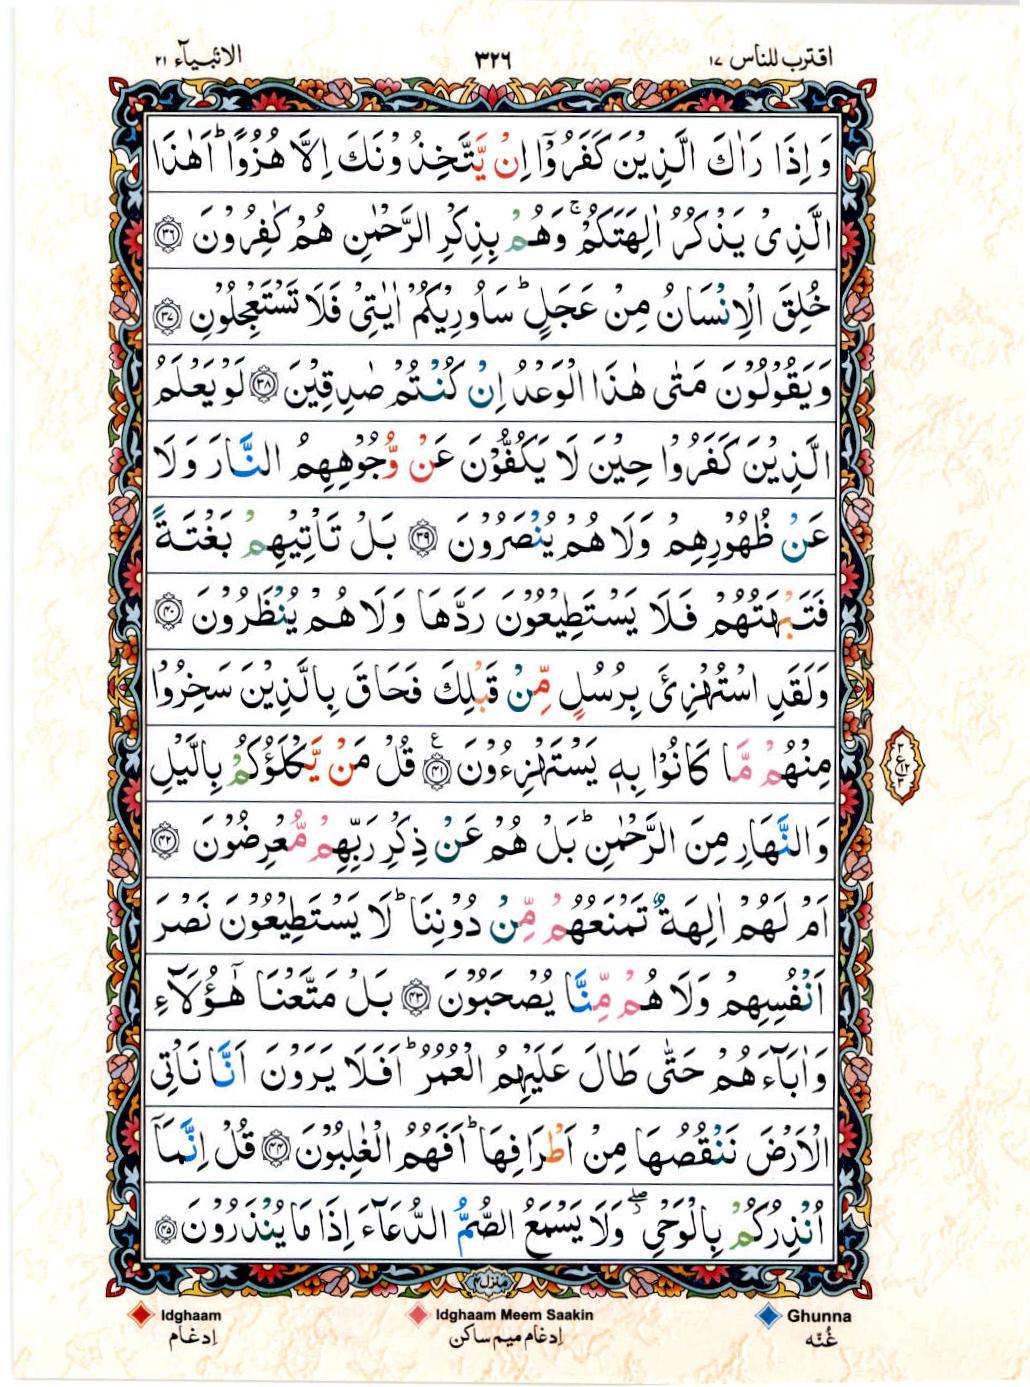 اقترب للناس ١٧ ٣٢٦ الانبيآء ٢١
وَاِذَا رَاٰكَ الَّذِيْنَ كَفَرُوْۤا اِنْ يَّتَّخِذُوْنَكَ اِلَّا هُزُوًاؕ اَهٰذَا
الَّذِىْ يَذْكُرُ اٰلِهَتَكُمْۚ وَهُمْ بِذِكْرِ الرَّحْمٰنِ هُمْ كٰفِرُوْنَ ﴿٣٦﴾
خُلِقَ الْاِنْسَانُ مِنْ عَجَلٍؕ سَاُورِيْكُمْ اٰيٰتِىْ فَلَا تَسْتَعْجِلُوْنِ ﴿٣٧﴾
وَيَقُوْلُوْنَ مَتٰى هٰذَا الْوَعْدُ اِنْ كُنْتُمْ صٰدِقِيْنَ ﴿٣٨﴾ لَوْ يَعْلَمُ
الَّذِيْنَ كَفَرُوْا حِيْنَ لَا يَكُفُّوْنَ عَنْ وُّجُوْهِهِمُ النَّارَ وَلَا
عَنْ ظُهُوْرِهِمْ وَلَا هُمْ يُنْصَرُوْنَ ﴿٣٩﴾ بَلْ تَاْتِيْهِمْ بَغْتَةً
فَتَبْهَتُهُمْ فَلَا يَسْتَطِيْعُوْنَ رَدَّهَا وَلَا هُمْ يُنْظَرُوْنَ ﴿٤٠﴾
وَلَقَدِ اسْتُهْزِئَ بِرُسُلٍ مِّنْ قَبْلِكَ فَحَاقَ بِالَّذِيْنَ سَخِرُوْا
مِنْهُمْ مَّا كَانُوْا بِهٖ يَسْتَهْزِءُوْنَ ﴿٤١﴾ ع قُلْ مَنْ يَّكْلَؤُكُمْ بِالَّيْلِ
وَالنَّهَارِ مِنَ الرَّحْمٰنِؕ بَلْ هُمْ عَنْ ذِكْرِ رَبِّهِمْ مُّعْرِضُوْنَ ﴿٤٢﴾
اَمْ لَهُمْ اٰلِهَةٌ تَمْنَعُهُمْ مِّنْ دُوْنِنَاؕ لَا يَسْتَطِيْعُوْنَ نَصْرَ
اَنْفُسِهِمْ وَلَا هُمْ مِّنَّا يُصْحَبُوْنَ ﴿٤٣﴾ بَلْ مَتَّعْنَا هٰٓؤُلَآءِ
وَاٰبَآءَهُمْ حَتّٰى طَالَ عَلَيْهِمُ الْعُمُرُؕ اَفَلَا يَرَوْنَ اَنَّا نَاْتِى
الْاَرْضَ نَنْقُصُهَا مِنْ اَطْرَافِهَاؕ اَفَهُمُ الْغٰلِبُوْنَ ﴿٤٤﴾ قُلْ اِنَّمَاۤ
اُنْذِرُكُمْ بِالْوَحْىِۖ وَلَا يَسْمَعُ الصُّمُّ الدُّعَآءَ اِذَا مَا يُنْذَرُوْنَ ﴿٤٥﴾
منزل ٤
Idghaam Idghaam Meem Saakin Ghunna
اِدغام اِدغام میم ساکن غُنّه